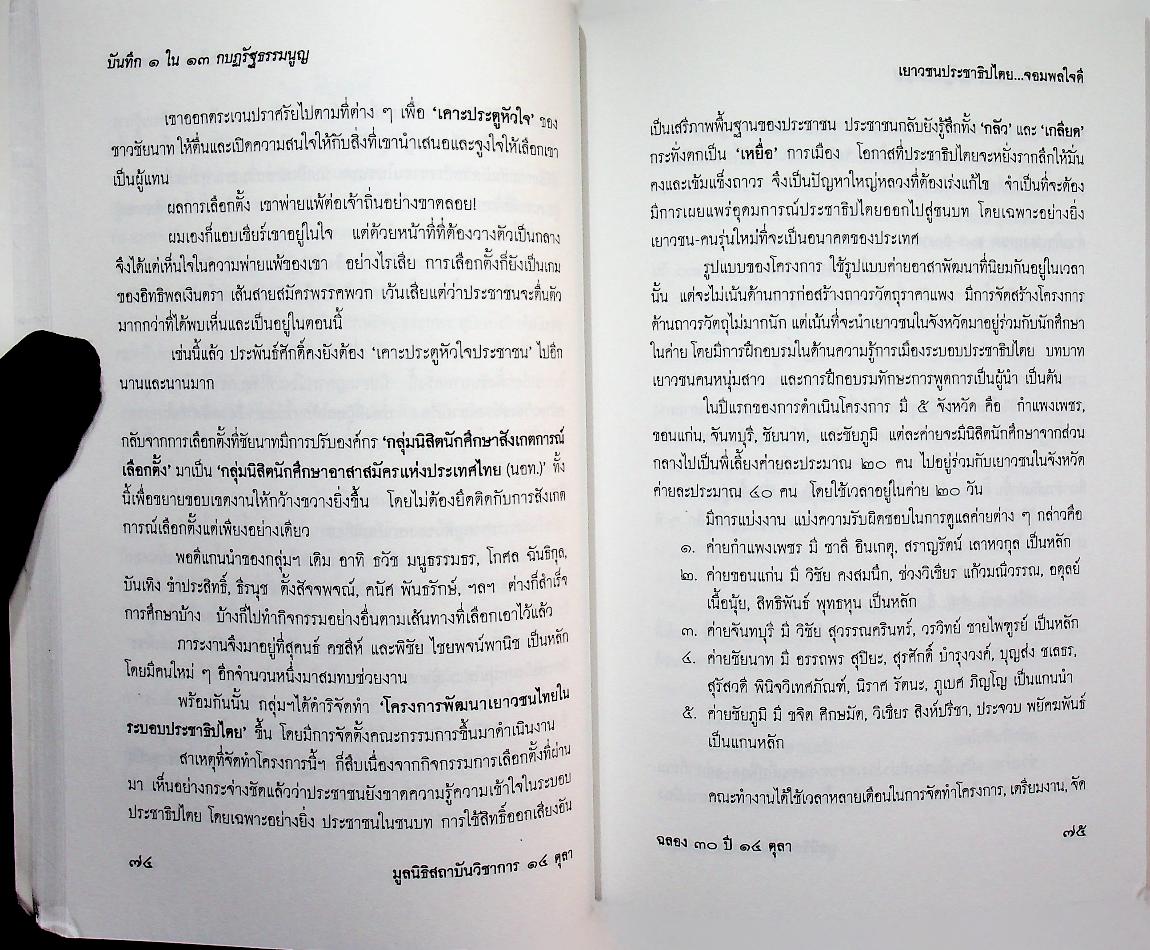 บันทึก ๑ ใน ๑๓ กบฏรัฐธรรมนูญ
เขาออกตระเวนปราศรัยไปตามที่ต่าง ๆ เพื่อ ‘เคาะประตูหัวใจ’ ของ
ชาวชัยนาท ให้ตื่นและเปิดความสนใจให้กับสิ่งที่เขานำเสนอและจูงใจให้เลือกเขา
เป็นผู้แทน
ผลการเลือกตั้ง เขาพ่ายแพ้ต่อเจ้าถิ่นอย่างขาดลอย!
ผมเองก็แอบเชียร์เขาอยู่ในใจ แต่ด้วยหน้าที่ที่ต้องวางตัวเป็นกลาง
จึงได้แต่เห็นใจในความพ่ายแพ้ของเขา อย่างไรเสีย การเลือกตั้งก็ยังเป็นเกม
ของอิทธิพลเงินตรา เส้นสายสมัครพรรคพวก เว้นเสียแต่ว่าประชาชนจะตื่นตัว
มากกว่าที่ได้พบเห็นและเป็นอยู่ในตอนนี้
เช่นนี้แล้ว ประพันธ์ศักดิ์คงยังต้อง ‘เคาะประตูหัวใจประชาชน’ ไปอีก
นานและนานมาก
กลับจากการเลือกตั้งที่ชัยนาทมีการปรับองค์กร ‘กลุ่มนิสิตนักศึกษาสังเกตการณ์
เลือกตั้ง’ มาเป็น ‘กลุ่มนิสิตนักศึกษาอาสาสมัครแห่งประเทศไทย (นอท.)’ ทั้ง
นี้เพื่อขยายขอบเขตงานให้กว้างขวางยิ่งขึ้น โดยไม่ต้องยึดติดกับการสังเกต
การณ์เลือกตั้งแต่เพียงอย่างเดียว
พอดีแกนนำของกลุ่มฯ เดิม อาทิ ธวัช มนูธรรมธร, โกศล ฉันธิกุล,
บันเทิง ชำประสิทธิ์, ธีรนุช ตั้งสัจจพจณ์, คนัศ พันธรักษ์, ฯลฯ ต่างก็สำเร็จ
การศึกษาบ้าง บ้างก็ไปทำกิจกรรมอย่างอื่นตามเส้นทางที่เลือกเอาไว้แล้ว
ภาระงานจึงมาอยู่ที่สุคนธ์ คชสีห์ และพิชัย ไชยพจน์พานิช เป็นหลัก
โดยมีคนใหม่ ๆ อีกจำนวนหนึ่งมาสมทบช่วยงาน
พร้อมกันนั้น กลุ่มฯได้ดำริจัดทำ ‘โครงการพัฒนาเยาวชนไทยใน
ระบอบประชาธิปไตย’ ขึ้น โดยมีการจัดตั้งคณะกรรมการขึ้นมาดำเนินงาน
สาเหตุที่จัดทำโครงการนี้ฯ ก็สืบเนื่องจากกิจกรรมการเลือกตั้งที่ผ่าน
มา เห็นอย่างกระจ่างชัดแล้วว่าประชาชนยังขาดความรู้ความเข้าใจในระบอบ
ประชาธิปไตย โดยเฉพาะอย่างยิ่ง ประชาชนในชนบท การใช้สิทธิ์ออกเสียงอัน
๗๔
มูลนิธิสถาบันวิชาการ ๑๔ ตุลา
เยาวชนประชาธิปไตย...จอมพลใจดี
เป็นเสรีภาพพื้นฐานของประชาชน ประชาชนกลับยังรู้สึกทั้ง ‘กลัว’ และ ‘เกลียด’
กระทั่งตกเป็น ‘เหยื่อ’ การเมือง โอกาสที่ประชาธิปไตยจะหยั่งรากลึกให้มั่น
คงและเข้มแข็งถาวร จึงเป็นปัญหาใหญ่หลวงที่ต้องเร่งแก้ไข จำเป็นที่จะต้อง
มีการเผยแพร่อุดมการณ์ประชาธิปไตยออกไปสู่ชนบท โดยเฉพาะอย่างยิ่ง
เยาวชน-คนรุ่นใหม่ที่จะเป็นอนาคตของประเทศ
รูปแบบของโครงการ ใช้รูปแบบค่ายอาสาพัฒนาที่นิยมกันอยู่ในเวลา
นั้น แต่จะไม่เน้นด้านการก่อสร้างถาวรวัตถุราคาแพง มีการจัดสร้างโครงการ
ด้านถาวรวัตถุไม่มากนัก แต่เน้นที่จะนำเยาวชนในจังหวัดมาอยู่ร่วมกับนักศึกษา
ในค่าย โดยมีการฝึกอบรมในด้านความรู้การเมืองระบอบประชาธิปไตย บทบาท
เยาวชนคนหนุ่มสาว และการฝึกอบรมทักษะการพูดการเป็นผู้นำ เป็นต้น
ในปีแรกของการดำเนินโครงการ มี ๕ จังหวัด คือ กำแพงเพชร,
ขอนแก่น, จันทบุรี, ชัยนาท, และชัยภูมิ แต่ละค่ายจะมีนิสิตนักศึกษาจากส่วน
กลางไปเป็นพี่เลี้ยงค่ายละประมาณ ๒๐ คน ไปอยู่ร่วมกับเยาวชนในจังหวัด
ค่ายละประมาณ ๔๐ คน โดยใช้เวลาอยู่ในค่าย ๒๐ วัน
มีการแบ่งงาน แบ่งความรับผิดชอบในการดูแลค่ายต่าง ๆ กล่าวคือ
๑. ค่ายกำแพงเพชร มี ชาลี อินเกตุ, สราญรัตน์ เลาหวกุล เป็นหลัก
๒. ค่ายขอนแก่น มี วิชัย คงสมนึก, ช่วงวิเชียร แก้วมณีวรรณ, อดุลย์
เนื้อนุ้ย, สิทธิพันธ์ พุทธหุน เป็นหลัก
๓. ค่ายจันทบุรี มี วิชัย สุวรรณครินทร์, วรวิทย์ ชายไพฑูรย์ เป็นหลัก
๔. ค่ายชัยนาท มี อรรถพร สุปิยะ, สุรศักดิ์ บำรุงวงศ์, บุญส่ง ชเลธร,
สุรัสวดี พินิจวิเทศภัณฑ์, นิราศ รัตนะ, ภูเบศ ภิญโญ เป็นแกนนำ
๕. ค่ายชัยภูมิ มี ขจิต ศึกษมัต, วิเชียร สิงห์ปรีชา, ประจวบ พยัคฆพันธ์
เป็นแกนหลัก
คณะทำงานได้ใช้เวลาหลายเดือนในการจัดทำโครงการ, เตรียมงาน, จัด
ฉลอง ๓๐ ปี ๑๔ ตุลา
๗๕